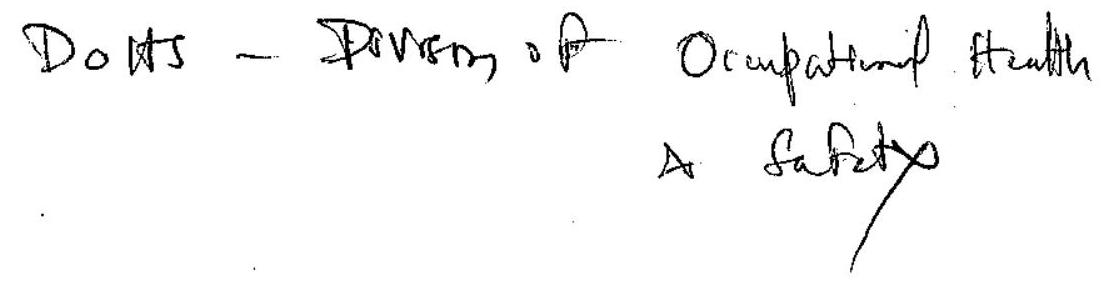 DoHS - Division of Occupational Health
& Safety